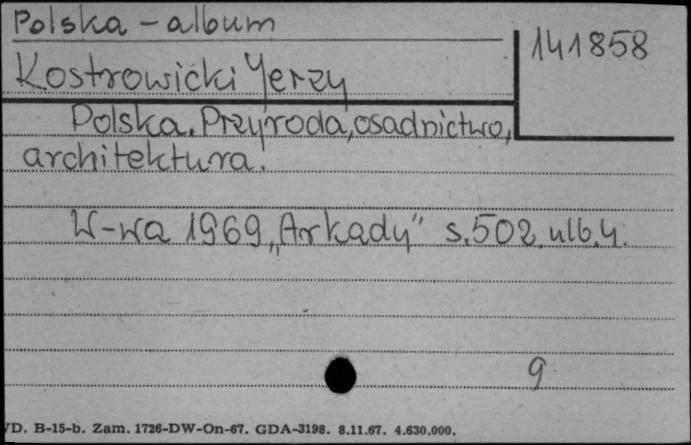 Polska - album
141858
Kostrowicki Jerzy
Polska. Przyroda, osadnictwo,
architektura.
W-wa 1969 „Arkady" s. 502, nlb. 4.
9
VD. B-15-b. Zam. 1726-DW-On-67. GDA-3198. 8.11.67. 4.630.000.